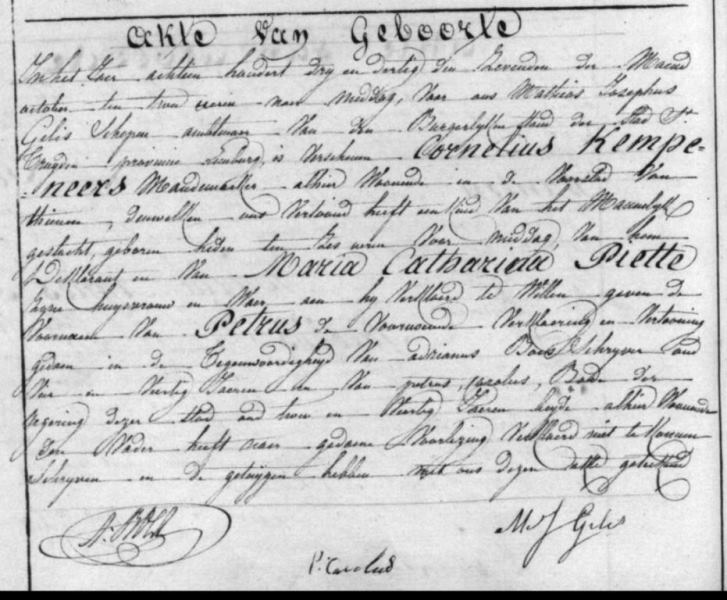 Akte Van Geboorte
In het Jaer achtien hondert dry en dertig den Zevenden der Maend
october ten twee uren naer middag, Voor ons Mathias Josephus
Gelis Schepen ambtenaer Van den Burgerlyken Stand der Stad St
Truyden provincie Limburg, is Verschenen Cornelius Kempe=
=neers Mandemaeker alhier Woonende in de Voorstad Van
thienen, denwelken ons Vertoond heeft een Kind Van het Mannelyk
geslacht, geboren heden ten zes uren Voor middag, Van hem
Deklarant en Van Maria Catharina Piette
Zyne huysvrouw en Waer aen hy Verklaerd te Willen geven de
Voornaem Van Petrus de Voornoemde Verklaering en Vertooning
gedaen in de Tegenwoordigheyd Van adrianus Schryver oud
Vier en Veertig Jaeren en Van petrus, carolus, Bode der
regering dezer stad oud twee en Veertig Jaeren beyde alhier Woonende
Den Vader heeft naer gedaene Voorlezing Verklaerd niet te Konnen
Schryven en de getuygen hebben met ons dezen akte geteekend
P. Carolus
M. J. Gelis